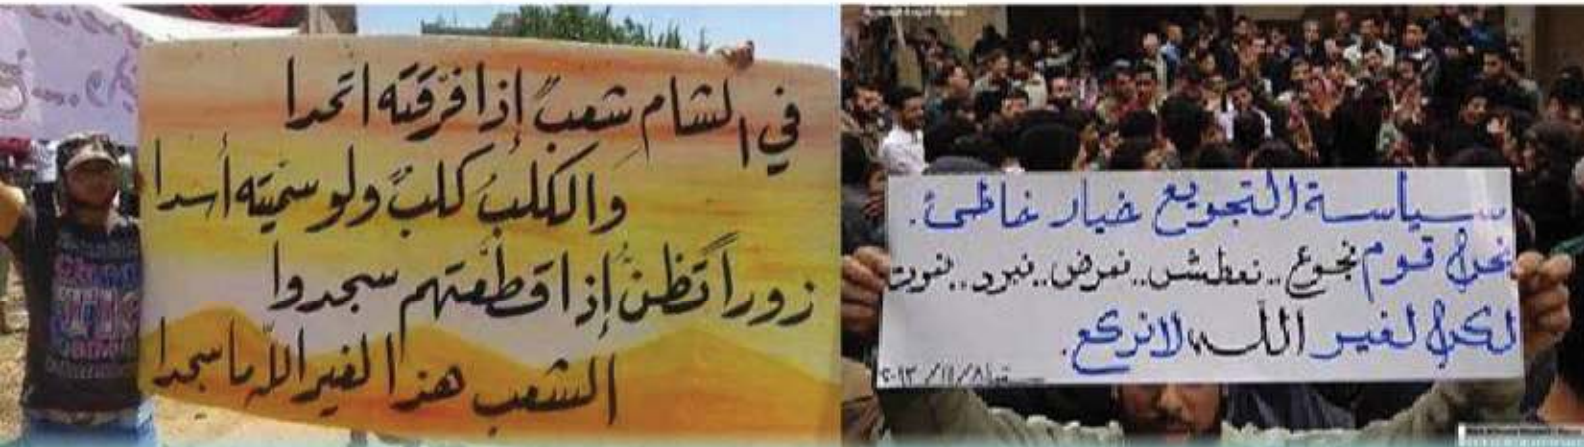 في الشام شعبٌ إذا فرّقته اتحدا
والكلبُ كلبٌ ولو سميته أسدا
زوراً تظنُّ إذا قطّعتهم سجدوا
الشعب هذا لغير اللّه ما سجدا
سياسة التجويع خيار خاطئ.
نحن قوم نجوع.. نعطش.. نمرض.. نبرد.. نموت
لكن لغير اللّه لا نركع.